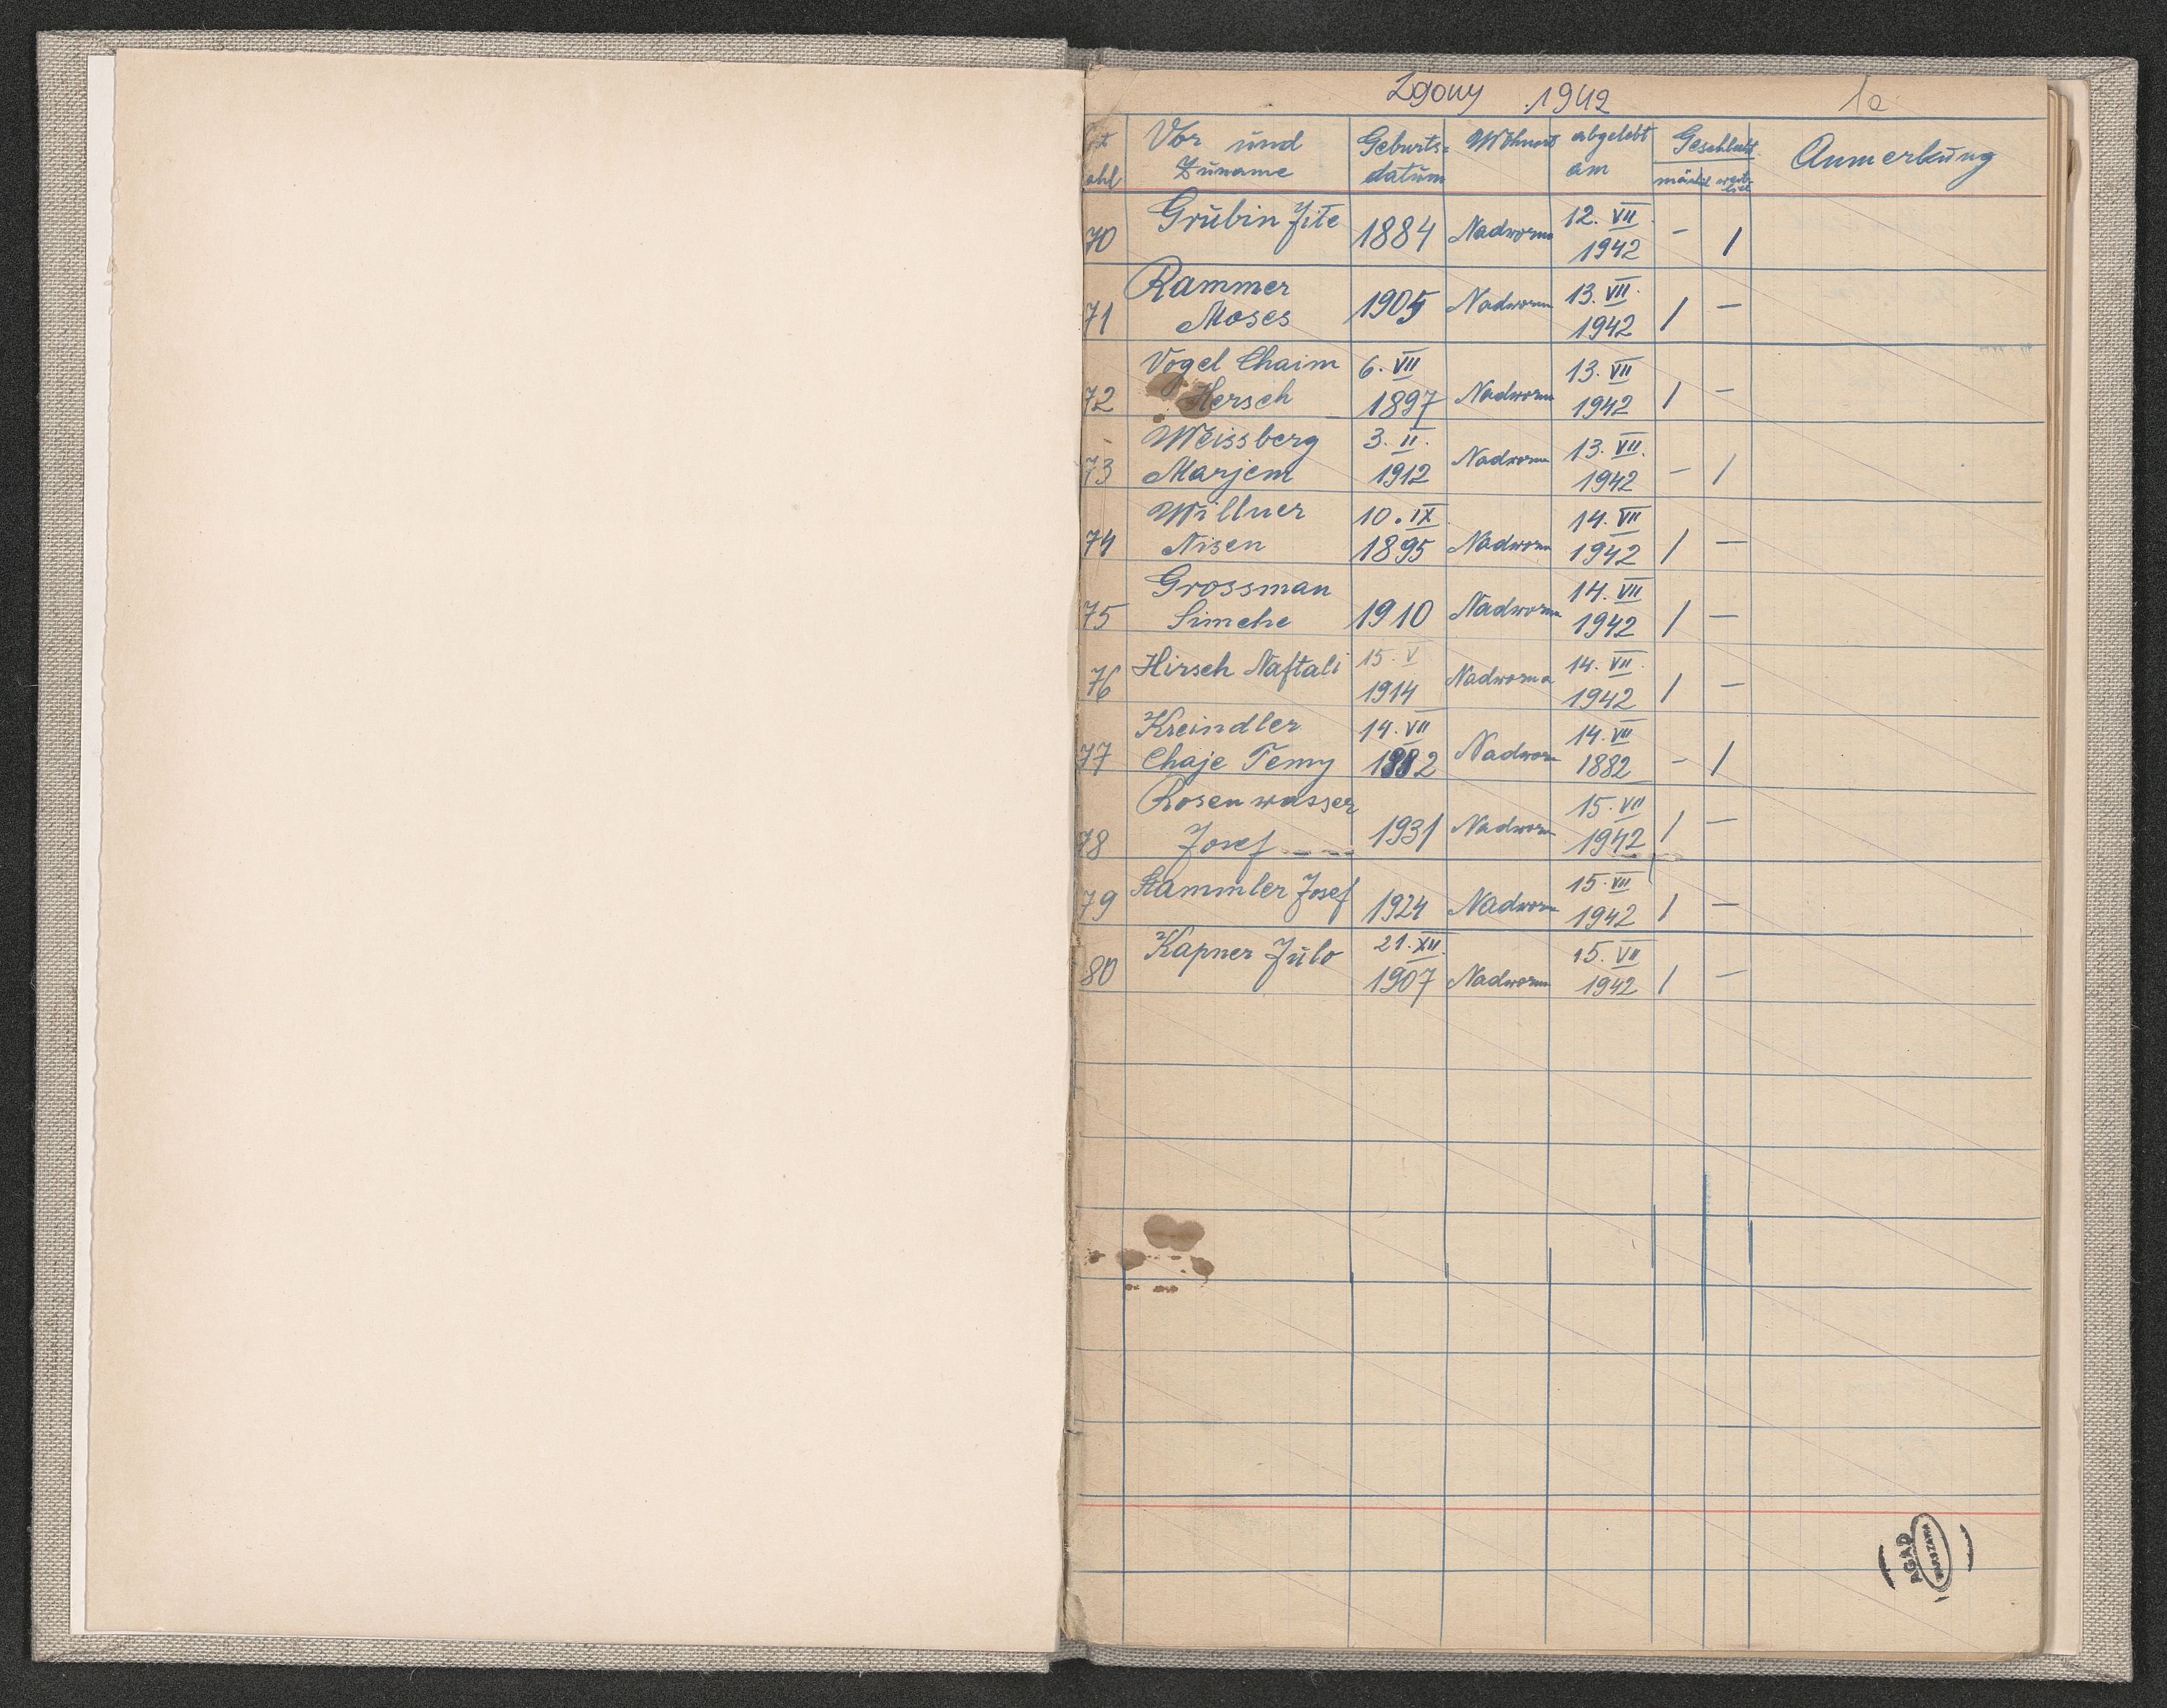 Zgony 1942 1a
Vor und Zuname Geburts-datum Wohnort abgelebt am Geschlecht männlich weiblich Anmerkung
70 Grubin Jite 1884 Nadworna 12. VII. 1942 – /
71 Rammer Moses 1905 Nadworna 13. VII. 1942 / –
72 Vogel Chaim Hersch 6. VII 1897 Nadworna 13. VII 1942 / –
73 Weissberg Marjem 3. II. 1912 Nadworna 13. VII. 1942 – /
74 Willner Nisen 10. IX. 1895 Nadworna 14. VII 1942 / –
75 Grossman Simche 1910 Nadworna 14. VII 1942 / –
76 Hirsch Naftali 15. V 1914 Nadworna 14. VII. 1942 / –
77 Kreindler Chaje Temy 14. VII 1882 Nadworn 14. VII 1882 – /
78 Rosenwasser Josef 1931 Nadworn 15. VII 1942 / –
79 Stammler Josef 1924 Nadworn 15. VII 1942 / –
80 Kapner Julo 21. XII. 1907 Nadworna 15. VII 1942 / –
AGAD
WARSZAWA